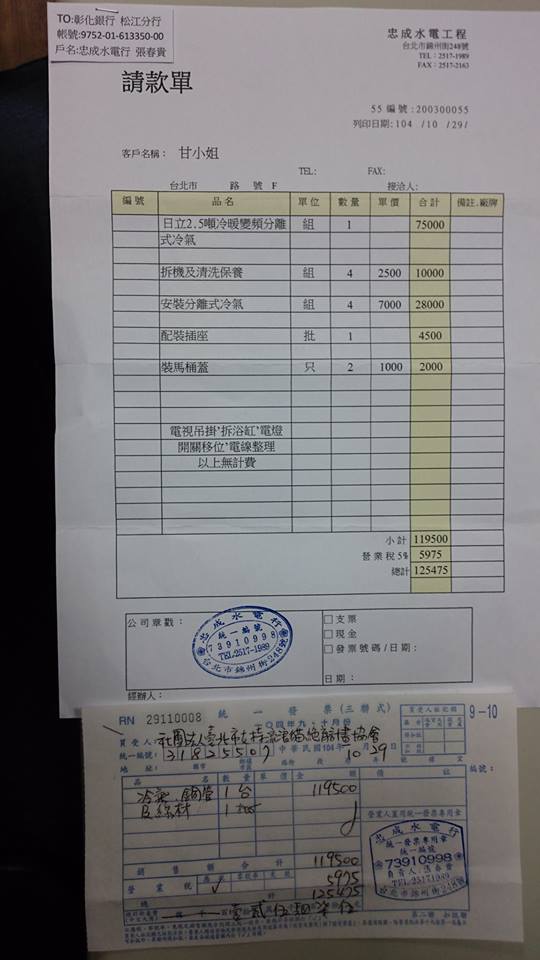 TO:彰化銀行 松江分行
帳號:9752-01-613350-00
戶名:忠成水電行 張春貴
忠成水電工程
台北市錦州街248號
TEL:2517-1989
FAX:2517-2163
請款單
55 編號:200300055
列印日期:104 /10 /29/
客戶名稱: 甘小姐
TEL: FAX:
台北市 路 號 F 接洽人:
編號 品名 單位 數量 單價 合計 備註.廠牌
日立2.5噸冷暖變頻分離 組 1 75000
式冷氣
拆機及清洗保養 組 4 2500 10000
安裝分離式冷氣 組 4 7000 28000
配裝插座 批 1 4500
裝馬桶蓋 只 2 1000 2000
電視吊掛'拆浴缸'電燈
開關移位'電線整理
以上無計費
小計 119500
營業稅5% 5975
總計 125475
公司章戳:
忠成水電行
統一編號
73910998
TEL:2517-1989
台北市錦州街248號
□支票
□現金
□發票號碼/日期:
日期:
經辦人:
RN 29110008 統一發票(三聯式)
一〇四年九、十月份
9-10
買受人:社團法人臺北市支持流浪貓絕育計畫協會
統一編號: 31825507 中華民國104年10月29日
地址:
品名 數量 單價 金額 備註
冷氣、銅管 1台 119500
及線材
營業人蓋用統一發票專用章
忠成水電行
統一發票專用章
統一編號
73910998
負責人:張春貴
TEL:25171989
台北市錦州街248號
銷售額合計 119500
營業稅 ✓ 5975
總計 125475
第二聯 扣抵聯